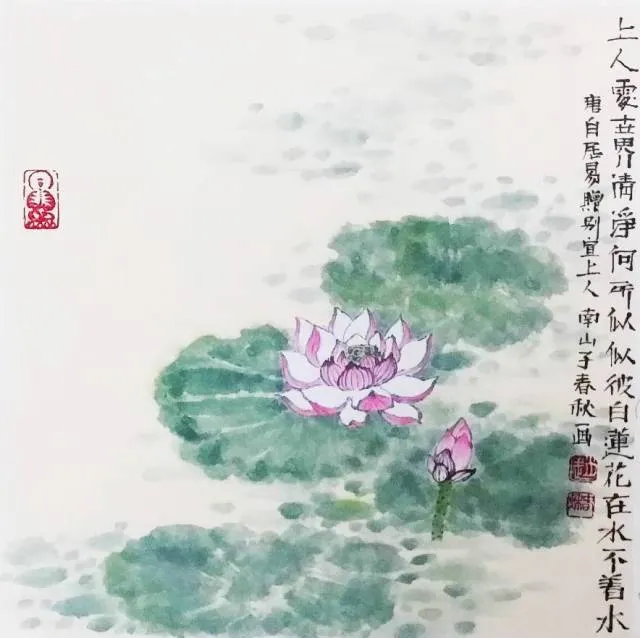 上人處世界清淨何所似似彼白蓮花在水不着水
唐白居易贈别宣上人 南山子春秋画